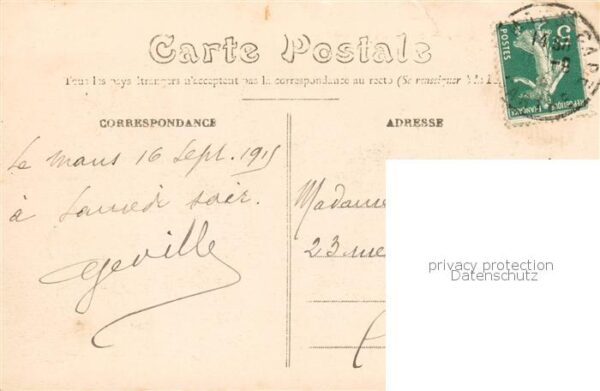 Carte Postale
Tous les pays étrangers n'acceptent pas la correspondance au recto (Se renseigner
CORRESPONDANCE
ADRESSE
Le Mans 16 Sept. 1915
à Samedi soir.
Madame
23 rue
5c
POSTES
REPUBLIQUE FRANÇAISE
privacy protection
Datenschutz